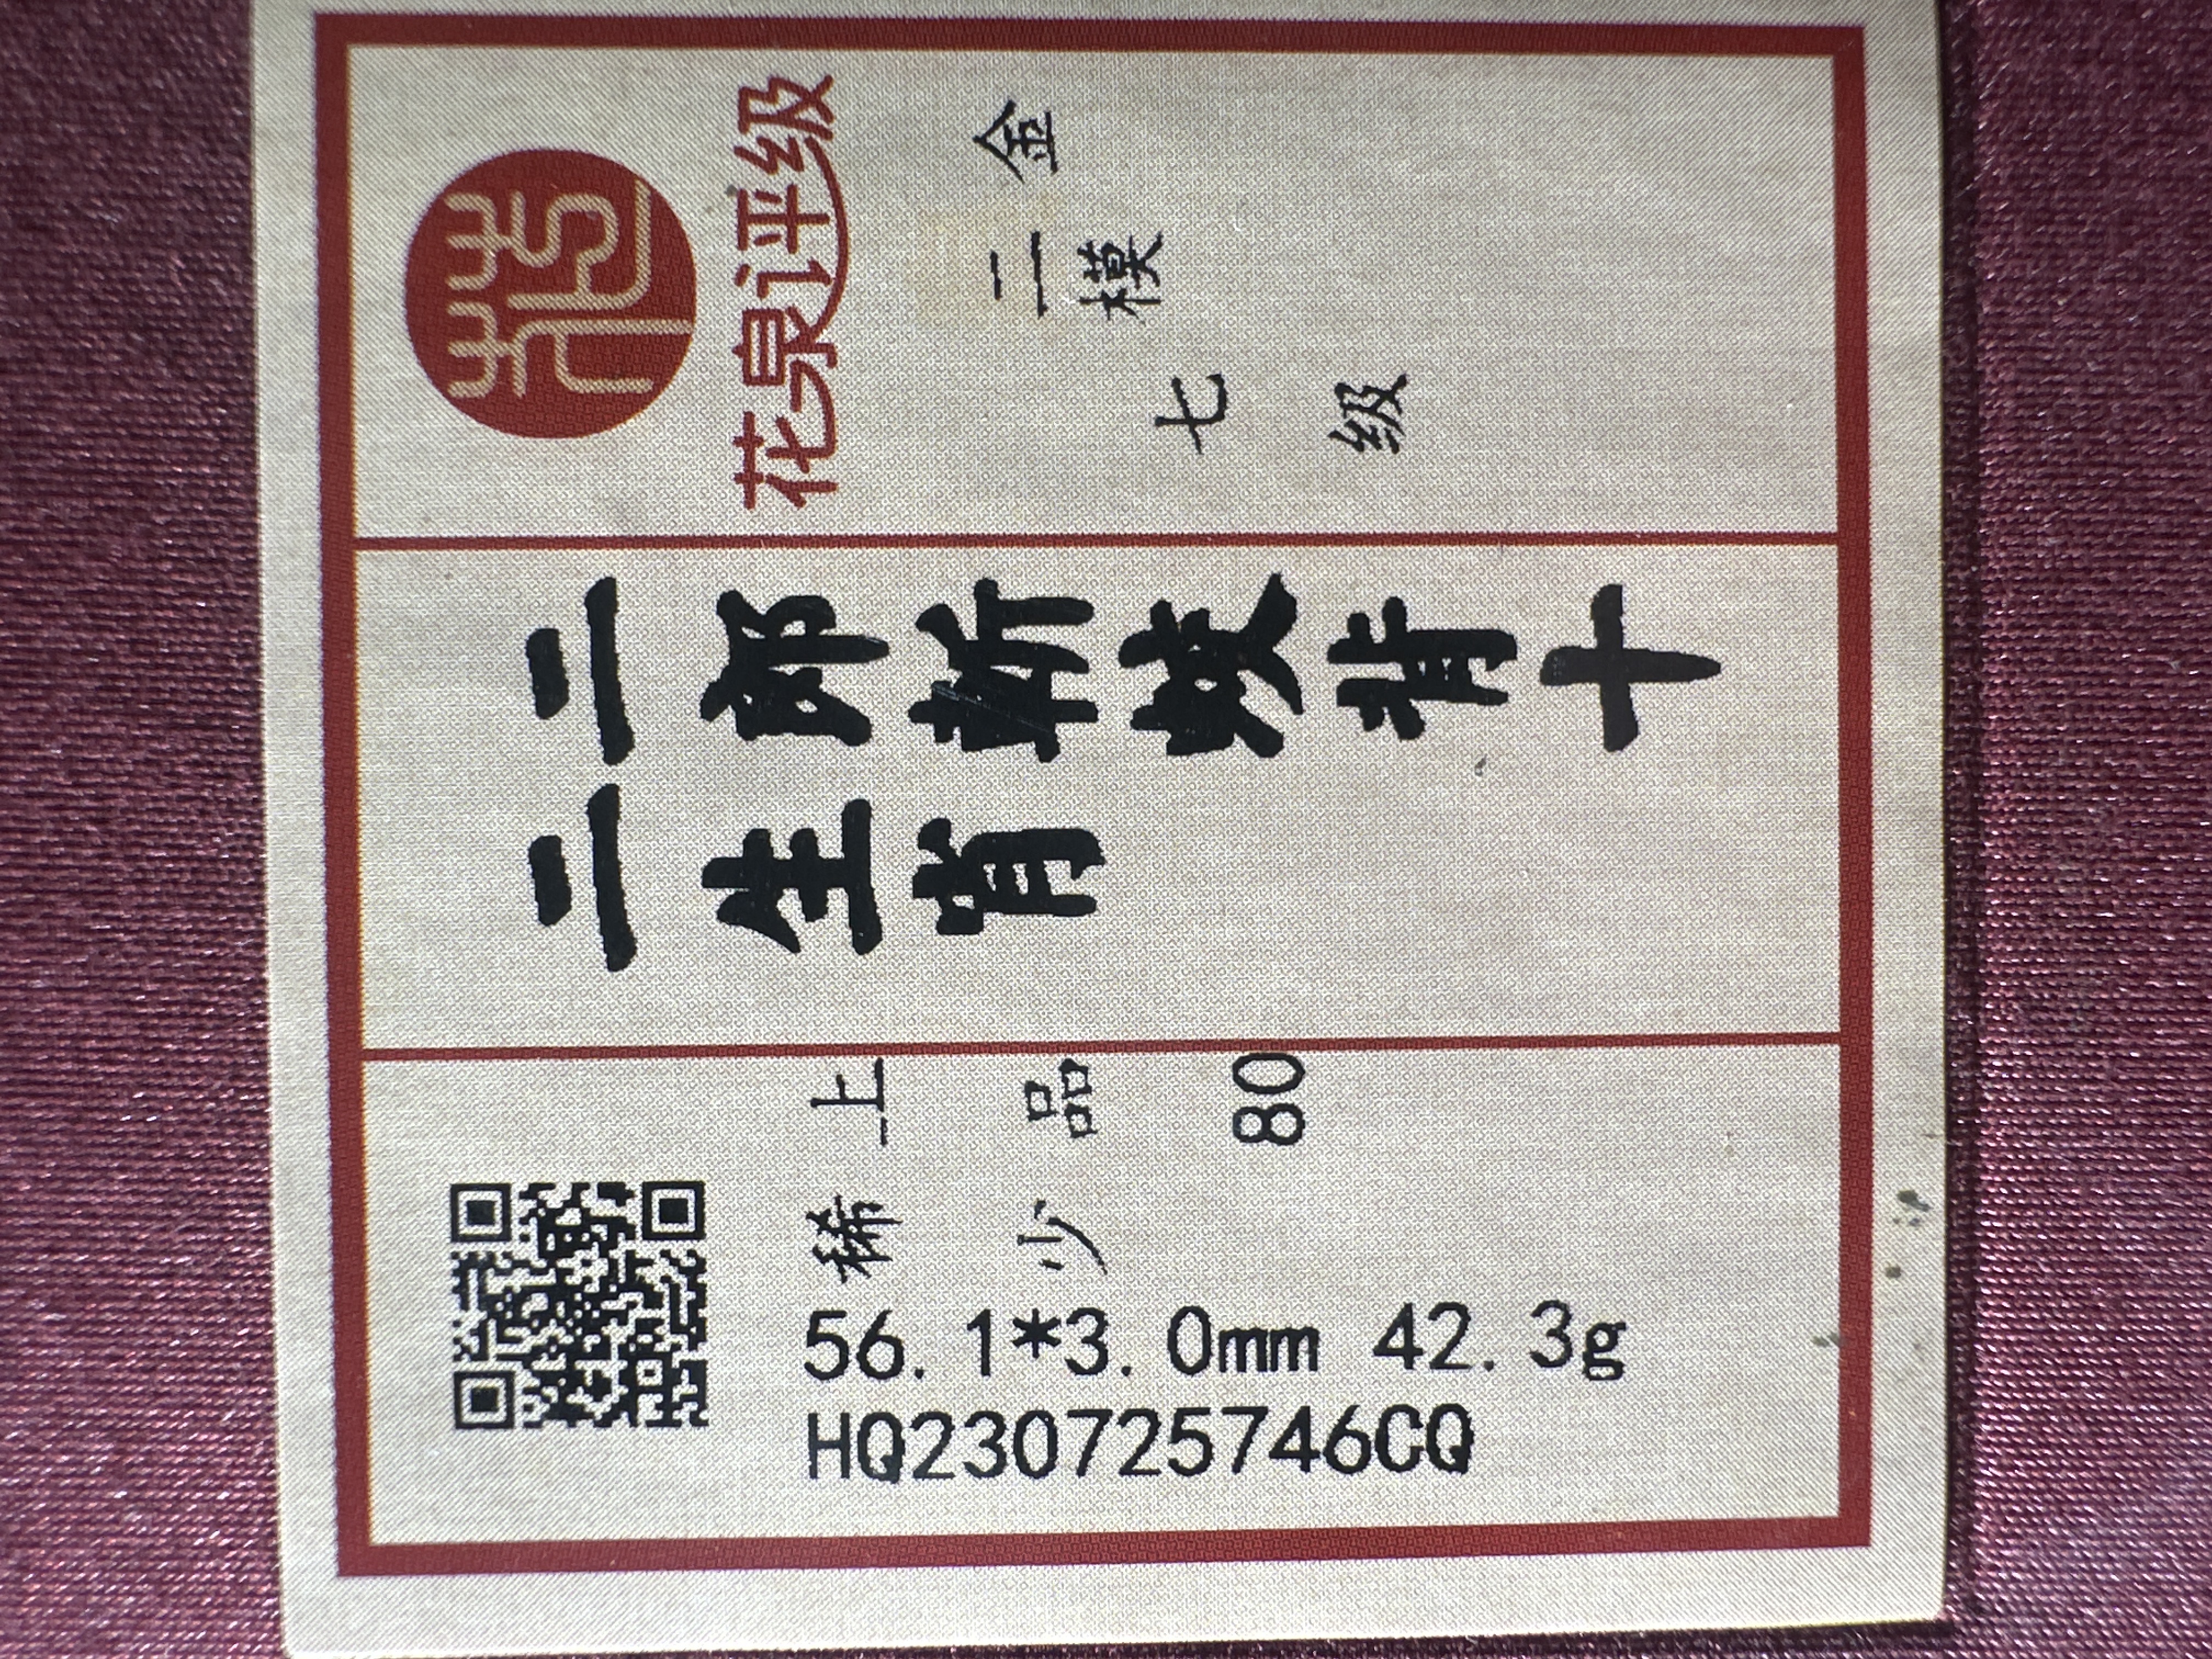 花
花泉评级
金
二模
七级
二郎斩蛟背十
二生肖
上品80
稀少
56.1*3.0mm 42.3g
HQ230725746CQ